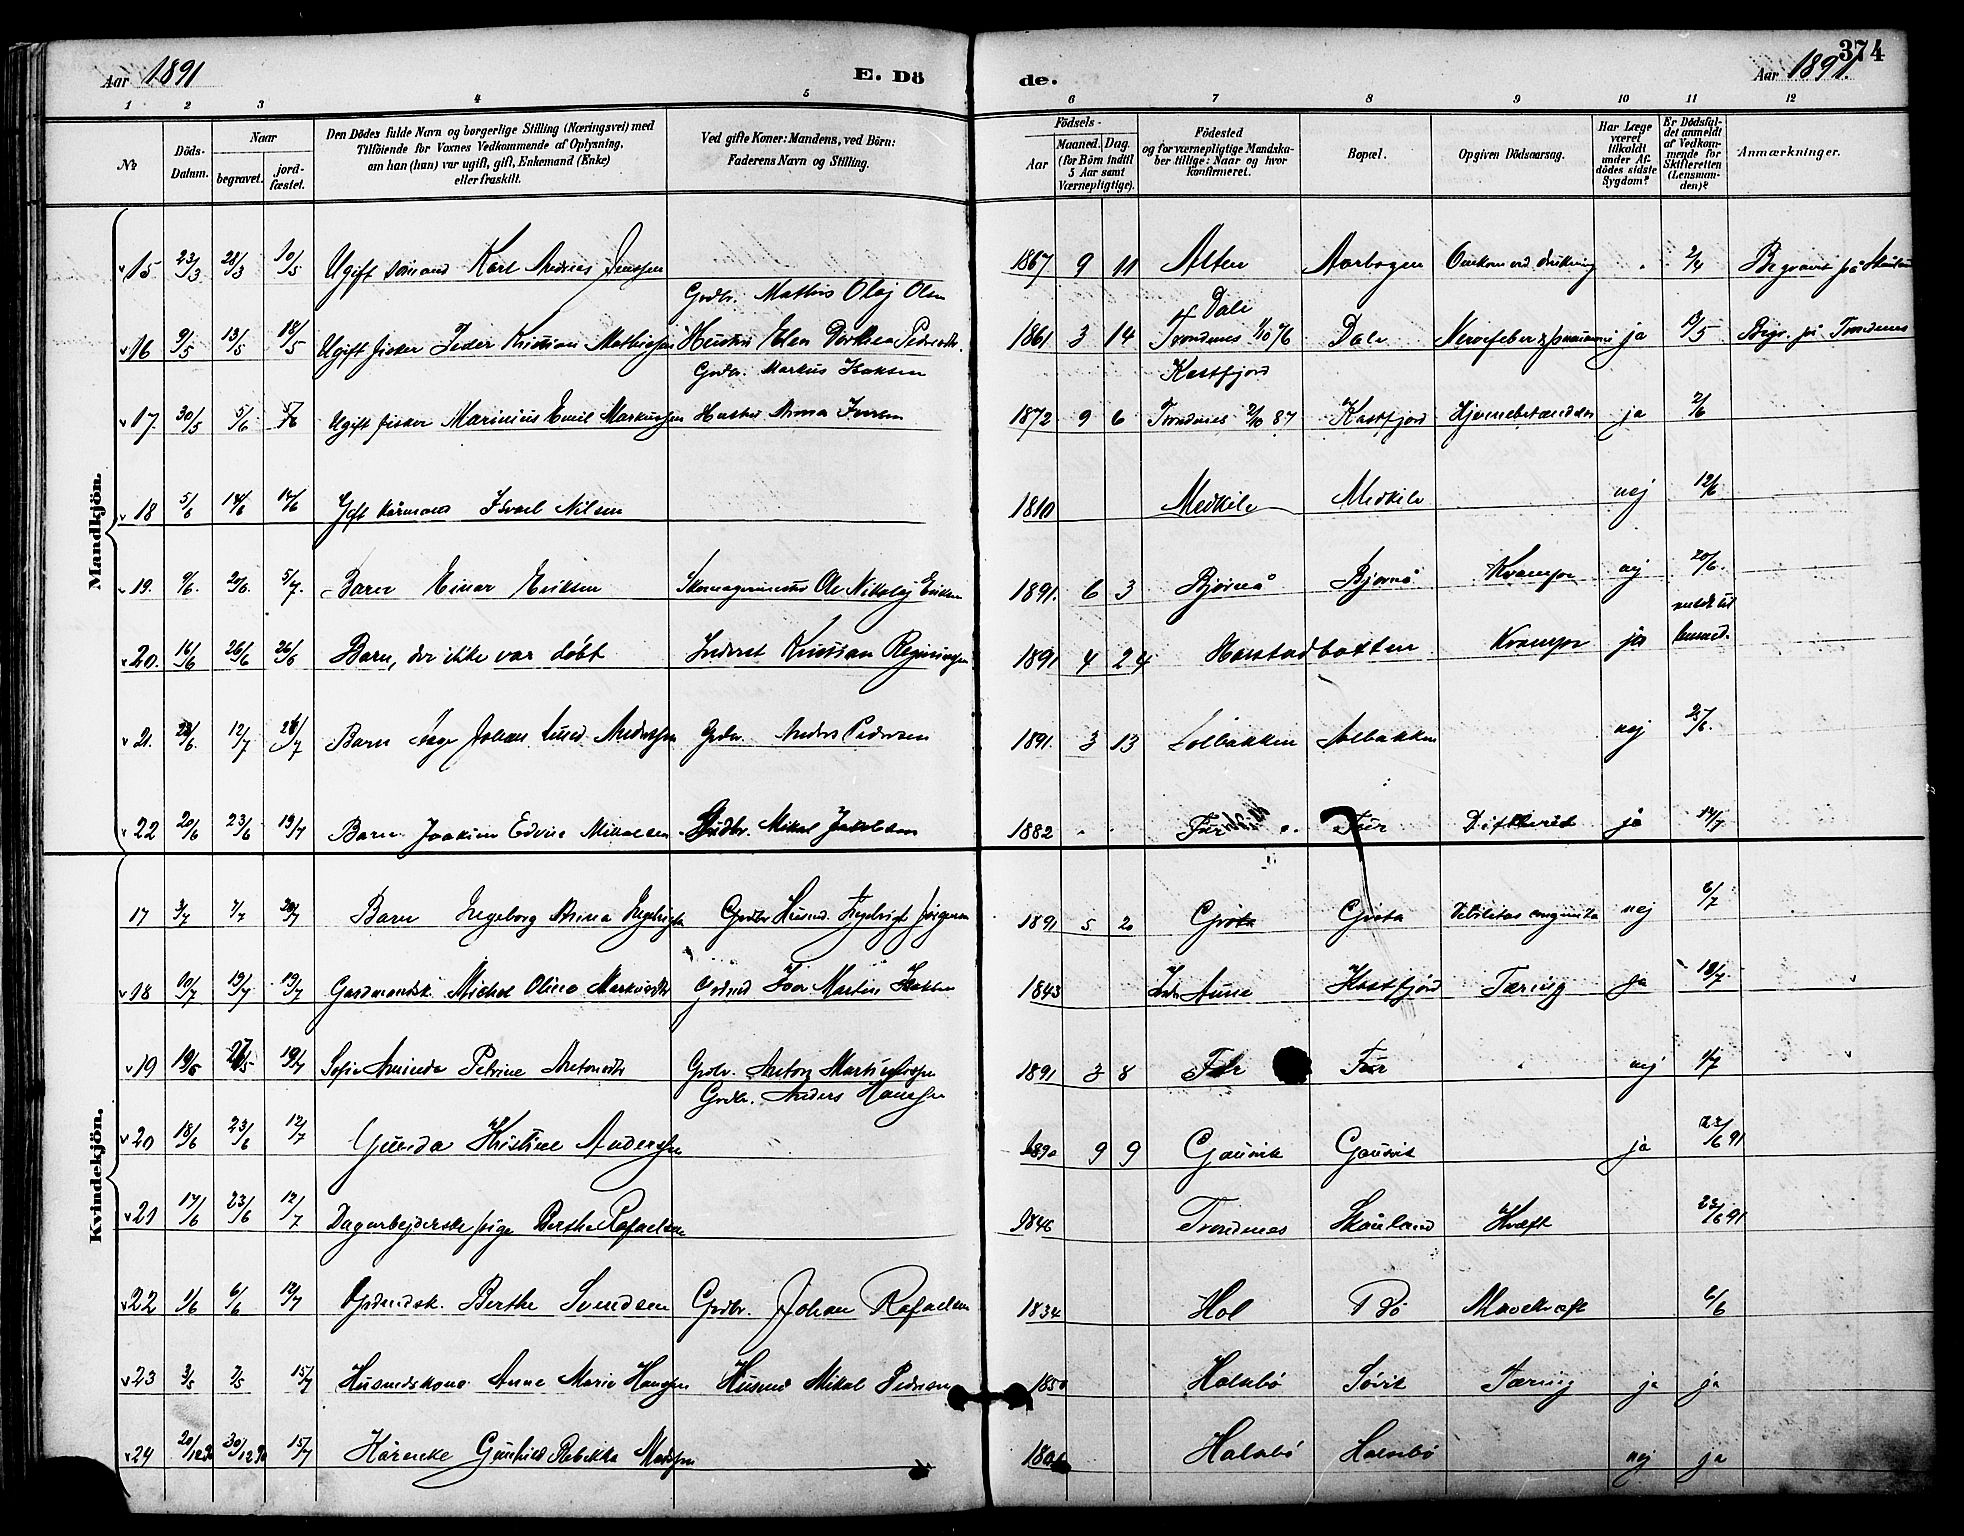 374
Aar 1891 E. Dö de. Aar 1891.
1 2 3 4 5 6 7 8 9 10 11 12
No
Döds-Datum.
Naar
begravet.
jord-fæstet.
Den Dödes fulde Navn og borgerlige Stilling (Næringsvei) med
Tilföiende for Voxnes Vedkommende af Oplysning,
om han (hun) var ugift, gift, Enkemand (Enke)
eller fraskilt.
Ved gifte Koner: Mandens, ved Börn:
Faderens Navn og Stilling.
Födsels-
Aar
Maaned. Dag.
(for Börn indtil
5 Aar samt
Værnepligtige).
Födested
og for værnepligtige Mandska-
ber tillige: Naar og hvor
konfirmeret.
Bopæl.
Opgiven Dödsaarsag.
Har Læge
været
tilkaldt
under Af-
dödes sidste
Sygdom?
Er Dödsfal-
det anmeldt
af Vedkom-
mende for
Skifteretten
(Lensman-
den)?
Anmærkninger.
Mandkjön.
15 23/3 28/3 10/5 Ugift sömand Karl Andreas Jenssen 1867 9 11 Alten Aarbogen Omkom ved drukning 2/4 Begravet på
Grdbr. Mathis Olaj Olsen Dale
16 9/5 13/5 18/5 Ugift fisker Peder Kristian Mathiesen Hustru Elen Dorthea Pedersdtr. 1861 3 14 Trondenes Dale Nervefeber ja 13/5 Begr. på Trondenes
Grdbr. Markus Isaksen Kastfjord
17. 30/5 5/6 5/6 Ugift fisker Marinius Emil Markussen Hustru Anna Iversen 1872 9 6 Trondenes 2/10 87 Kastfjord Hjernebetændelse ja 2/6
18 5/6 14/6 14/6 Gift kårmand Israel Nilsen 1810 Medkile Medkile nej 12/6
19. 9/6. 20/6. 5/7. Barn Einar Eriksen Skomagermester Ole Nikolaj Eriksen 1891. 6 3 Bjørnå Bjørnå Krampe nej 20/6.
20. 16/6 26/6 26/6 Barn, der ikke var døbt Inderst Kristian 1891 4 24 Harstadbotten Krampe ja meldt til lensmd.
21. 22/6. 12/7 26/7 Barn Aage Johan Anderssen Grdbr. Anders Pedersen 1891. 3 13 Solbakken Solbakken nej 25/6.
22 20/6 23/6 19/7 Barn Joakim Edvin Mikalsen Grdbr. Mikal Jakobsen 1882 Fur Fur Difterit ja 14/7
Kvindekjön.
17 3/7 7/7 20/7 Barn Ingeborg Anna Grdbr Husmd. Ingebrigt Jörgensen 1891 5 2 Grøta Grøta Debilitas congenita nej 6/7
18 10/7 19/7 19/7 Gaardmandsk. Michal Olina Markusdtr Grdmd Iver Martin 1843 Aune Kastfjord Tæring ja 18/7
19 19/5 27/5 19/7 Sofie Aminda Petrine Antonsdtr Grdbr. Anton 1891 3 8 Fur Fur nej 1/7
Grdbr. Anders Hanssen
20 18/6 23/6 12/7 Gunda Kristine Anderssen 1890 9 9 Gausvik Gausvik ja 23/6 91
21 17/6 23/6 12/7 Dagarbejderske pige Berthe Rafaelsen 1846 Trondenes Skånland Kræft 23/6 91
22 1/6 6/6 12/7 Grdmdsk. Berthe Svendsen Grdbr. Johan Rafaelsen 1834 Hol Bö Mavekræft 6/6
23 3/5 7/5 15/7 Husmdskone Anne Marie Hanssen Husmd Mikal Pedersen 1850 Halsebö Sövik Tæring ja ja
24 20/12 90 30/12 90 15/7 Kårenke Gunhild Rebekka Madssen Halsebö Halsebö nej ja